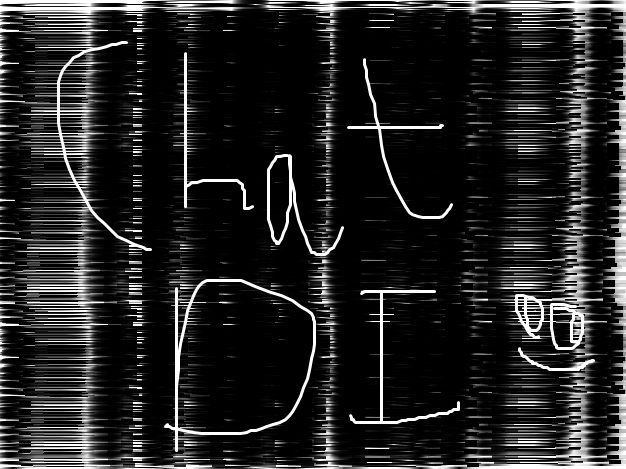 Chat
DI